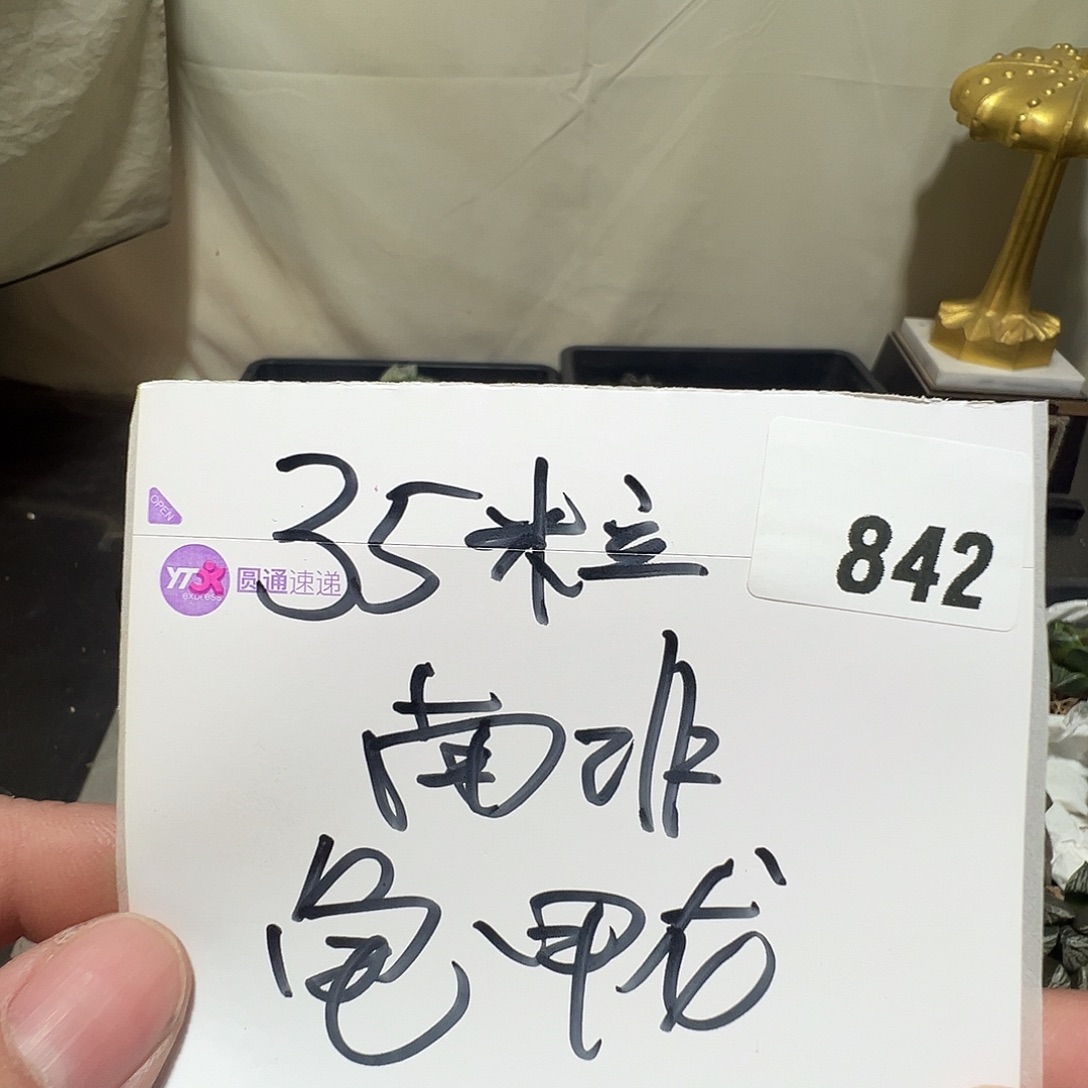 35粒
842
OPEN
YTO express
圆通速递
南非
龟甲龙